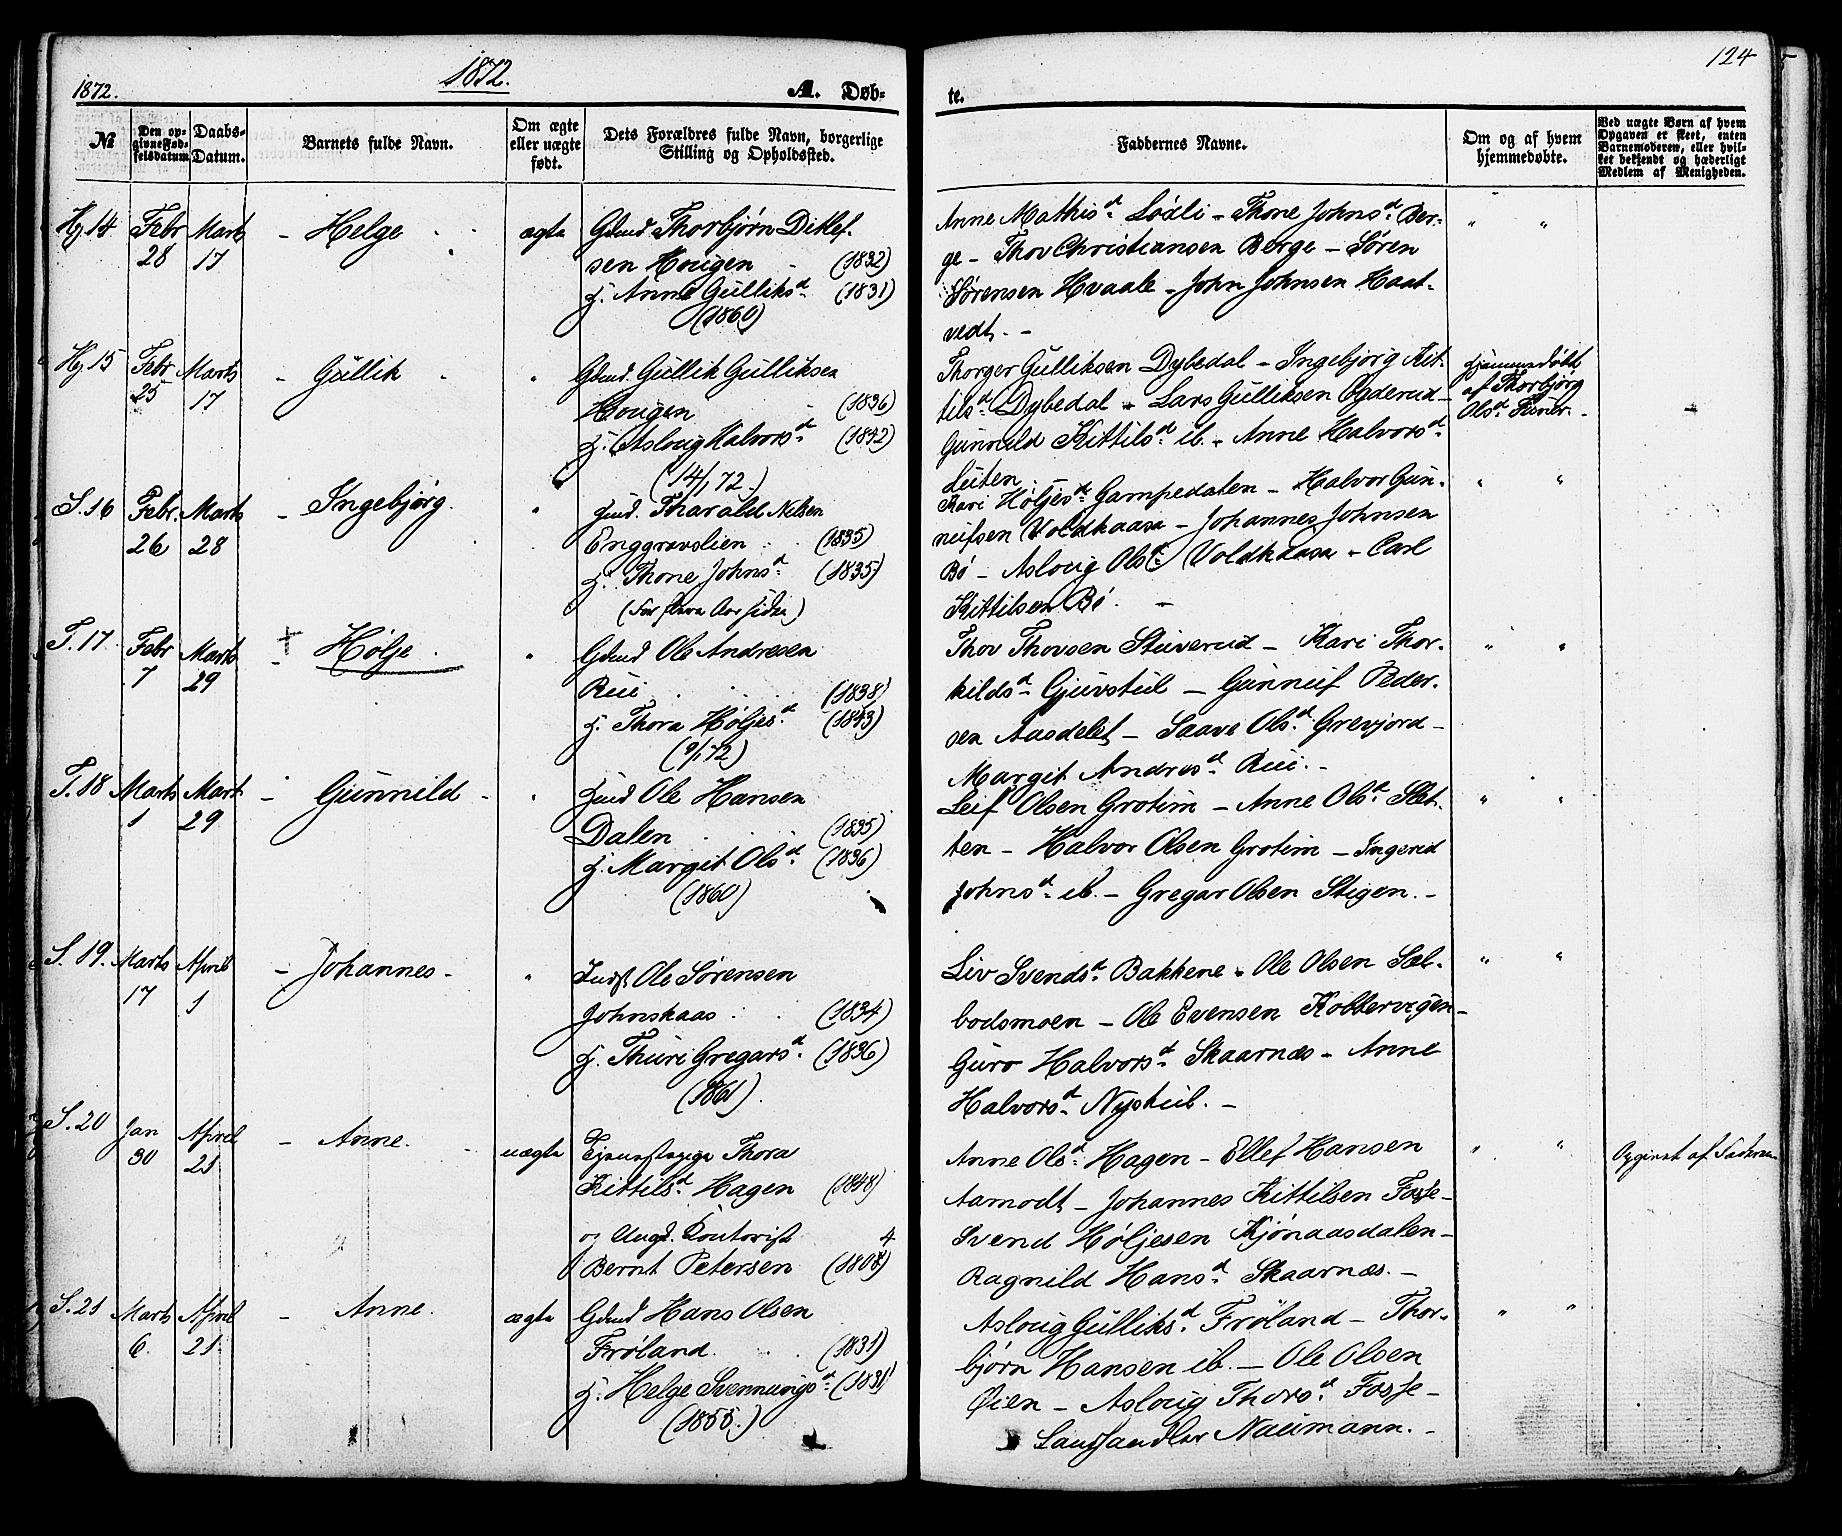 1872.
1872.
A. Døb-
te.
124
№
Den op-
givne Fød-
selsdatum
Daabs-
Datum.
Barnets fulde Navn.
Om ægte
eller uægte
født.
Dets Forældres fulde Navn, borgerlige
Stilling og Opholdssted.
Faddernes Navne.
Om og af hvem
hjemmedøbte.
Ved uægte Børn af hvem
Opgaven er skeet, enten
Barnemoderen, eller hvil-
ket bekjendt og hæderligt
Medlem af Menigheden.
Hj 14 Febr 28 Marts 17 - Helge ægte
Gbmd Thorbjørn Ditlef-
sen Hougen (1832)
H. Anne Gulliksd. (1831)
(1860)
Anne Mathisd. Löxli - Thone Johnsd. Ber-
ge - Thov Christiansen Berge - Søren
Sørensen Hvaale - John Johnsen Haat-
vedt. -
" "
Hj 15 Febr 25 Marts 17 - Gullik "
Gbmd. Gullik Gulliksen
Hougen (1836)
H. Asloug Halvorsd. (1842)
(14/1 72.)
Thorger Gulliksen Dybedal - Ingebjørg Kit-
tilsd. Dybedal - Lars Gulliksen Ogderud -
Gunnild Kittilsd. ib. - Anne Halvorsd.
Leiten
Hjemmedøbt
af Thorbjørg
Olsd.
S. 16 Febr. 26 Marts 28 - Ingebjørg. "
Hmd. Tharald Nilsen
Enggravslien (1835)
H. Thone Johnsd. (1835)
(for flere Aar siden)
Kari Høljesd. Gampedalen - Halvor Gun-
nufsen Voldkaasa - Johannes Johnsen
Bø - Asloug Olsd. Voldkaasa - Carl
Kittilsen Bø. -
" "
T. 17 Febr 7 Marts 29 - Hølje. "
Gbmd Ole Andresen
Rui (1838)
H. Thora Høljesd. (1843)
(9/1 72)
Thov Thovsen Stuverud - Kari Thor-
kildsd. Gjuvstul - Gunnuf Peder-
sen Aasdelet - Saave Olsd. Grevjord -
Margit Andresd. Rui. -
" "
T. 18 Marts 1 Mart 29 - Gunnild - "
Hmd Ole Hansen
Dalen (1835)
H. Margit Olsd. (1836)
(1860)
Leif Olsen Grotim - Anne Olsd. Slet-
ten - Halvor Olsen Grotim - Ingerid
Johnsd. ib. - Gregar Olsen Stigen. -
" "
S. 19. Marts 17 April 1 - Johannes - "
Indst Ole Sørensen
Johnskaas (1834)
H. Thuri Gregarsd. (1836)
(1861).
Liv Svendsd. Bakkene - Ole Olsen Sæl-
bodsmoen - Ole Evensen Kobbervigen -
Guro Halvorsd. Skaarnæs - Anne
Halvorsd. Nystul. -
" "
S. 20 Jan 30 April 21 - Anne. uægte
Tjenestepige Thora
Kittilsd. Hagen (1848)
og Ungk. Kontorist 4
Bernt Petersen (1808)
Anne Olsd. Hagen - Ellef Hansen
Aamodt - Johannes Kittilsen Fosse -
Svend Høljesen Kjønaasdalen -
Ragnild Hansd. Skaarnæs. -
" "
Opgivet af Faderen
S. 21 Marts 6. April 21 - Anne. ægte
Gbmd Hans Olsen
Frøland. (1831)
H. Helge Svennungsd. (1831)
(1855.)
Asloug Gulliksd. Frøland - Thor-
bjørn Hansen ib. - Ole Olsen
Øien - Asloug Thorsd. Fosse -
Landhandler Naumann. -
" "